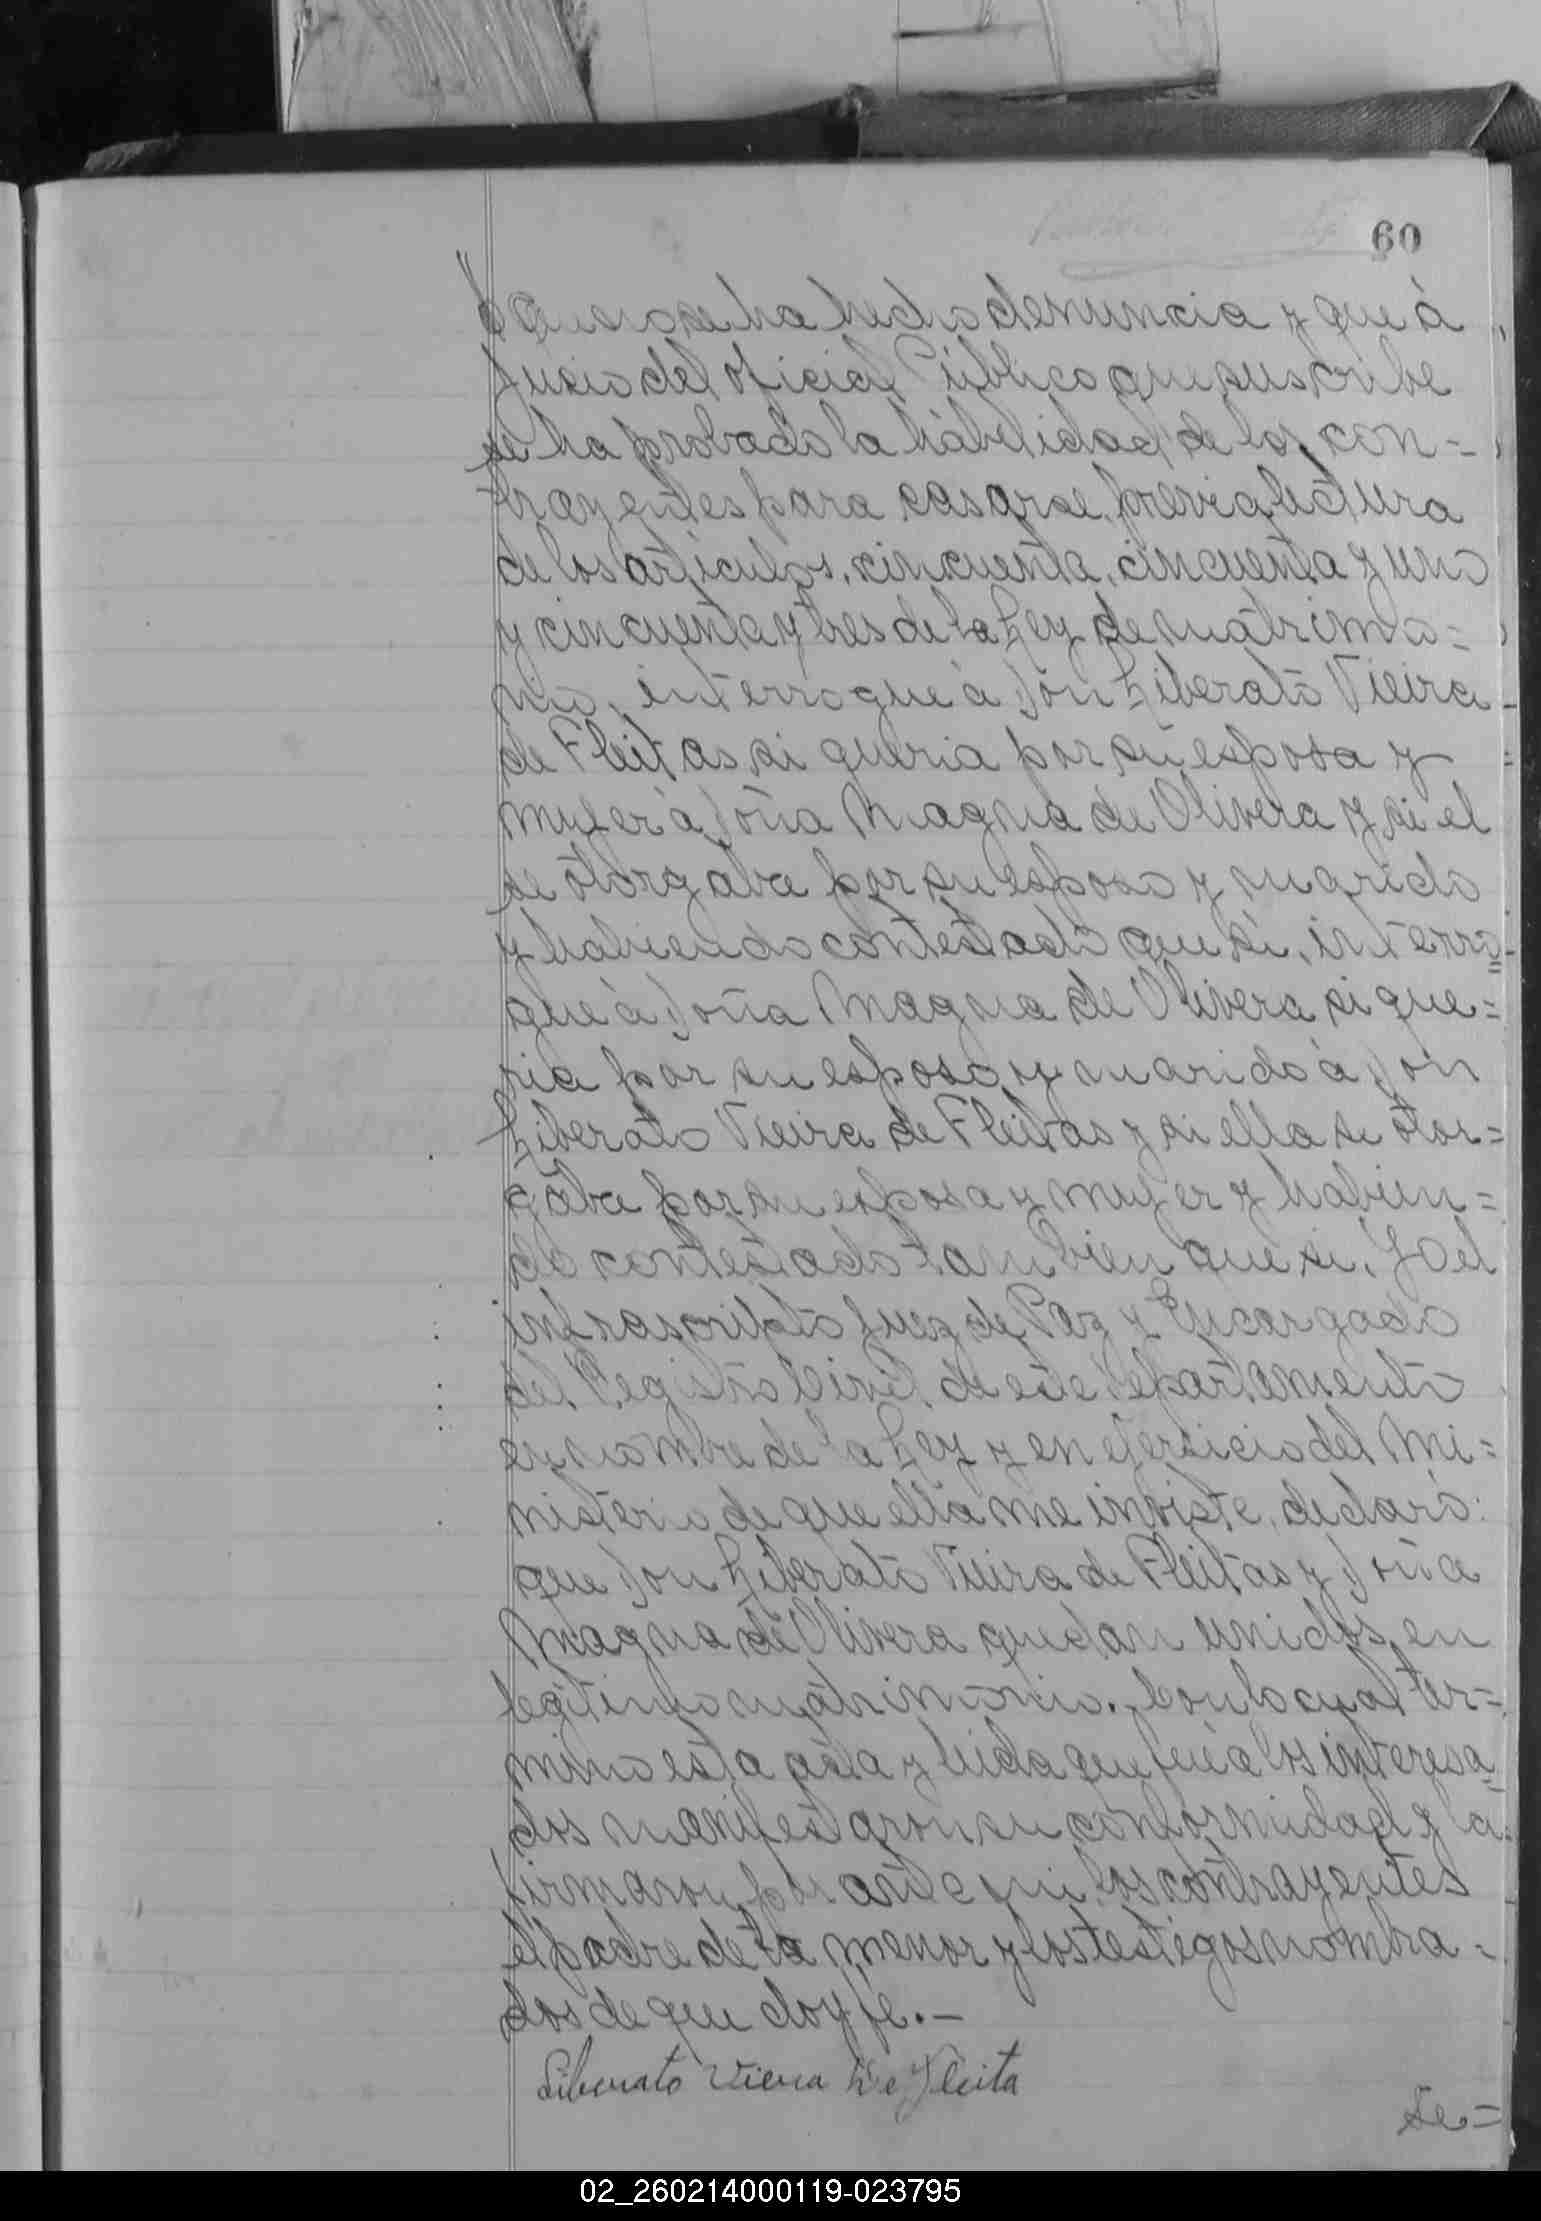 60
que no se ha hecho denuncia y que á
juicio del oficial Público que suscribe
se ha probado la hábilidad de los con=
trayentes para casarse, previa lectura
de los articulos, cincuenta, cincuenta y uno
y cincuenta y tres de la Ley de matrimo=
nio, interrogué á Don Liberato Vieira
de Fleitas si queria por su esposa y
mujer á Doña Magna de Olivera y si el
se otorgaba por su esposo y marido
y habiendo contestado que si, interro=
gué á Doña Magna de Olivera si que=
ria por su esposo y marido á Don
Liberato Vieira de Fleitas y si ella se otor=
gaba por su esposa y mujer y habien=
do contestado tambien que si, Yo el
infrascripto Juez de Paz y Encargado
del Registro Civil de este Departamento
en nombre de la Ley y en ejersicio del Mi=
nisterio de que ella me inviste, declaro:
que Don Liberato Vieira de Fleitas y Doña
Magna de Olivera quedan unidos en
legitimo matrimonio. Con lo cual ter=
mino esta acta y leida que fué a los interesa=
dos manifestaron su conformidad y la
firmaron por ante mi los contrayentes
el padre de la menor y los testigos nombra=
dos de que doy fe.—
Liberato Viera De Fleita
Se=
02_260214000119-023795